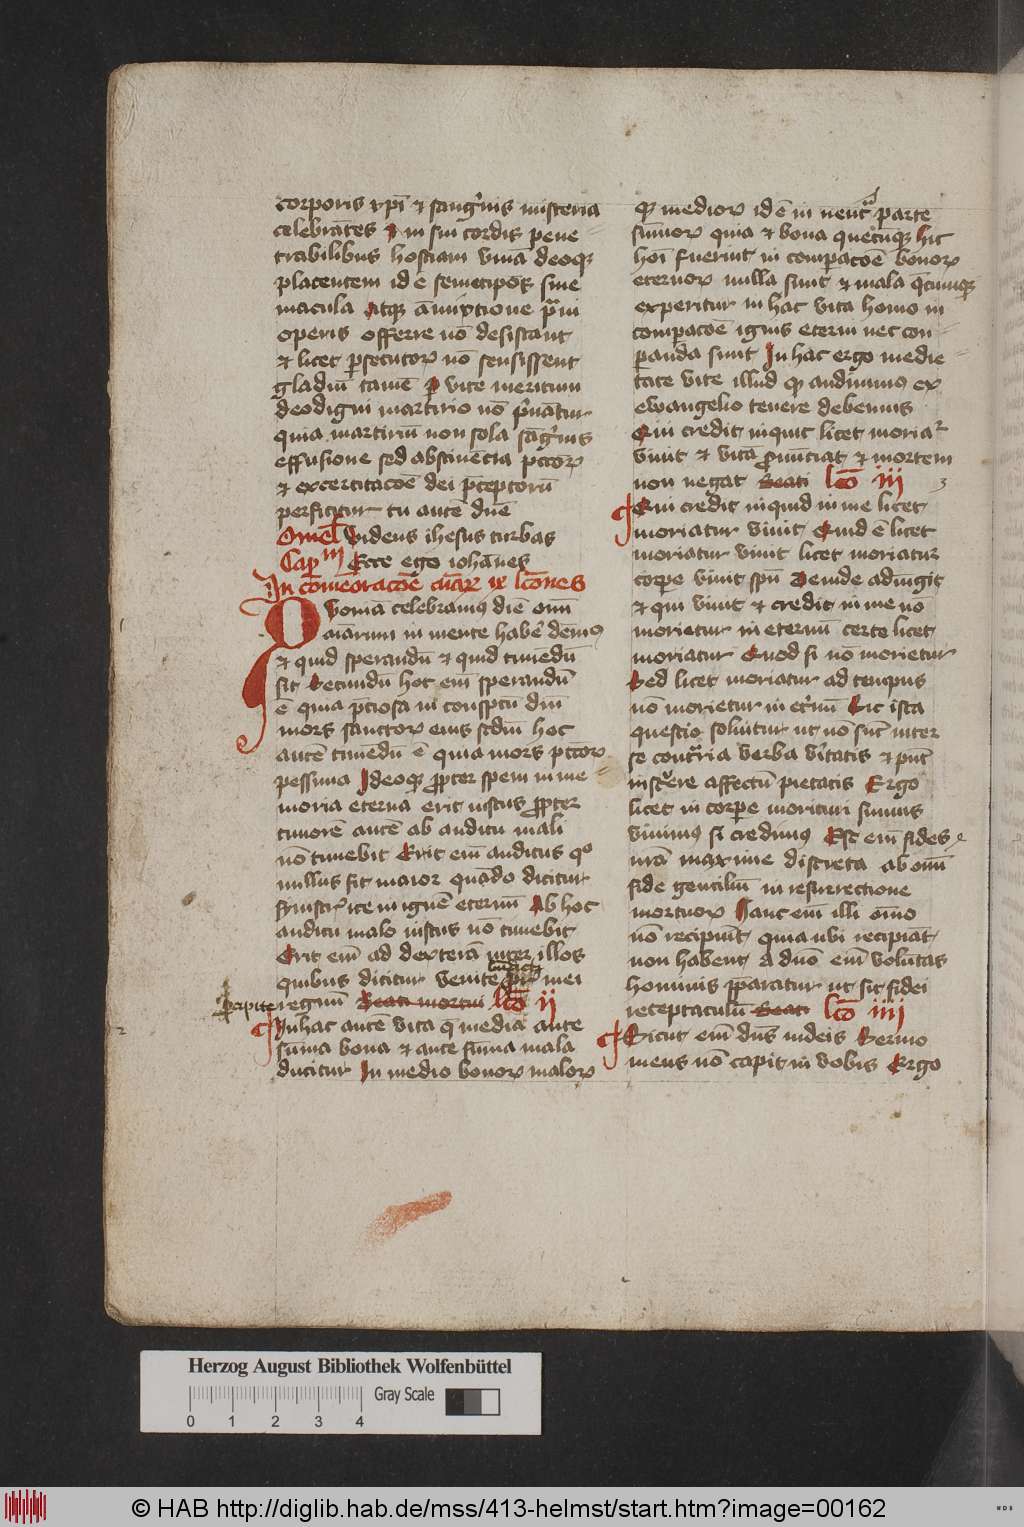 corporis xpi et sang͛nis misteria
celebrātes et in sui cordis pene
trabilibus hostiam viuā deoqʒ
placentem id ē semetipos sine
macula atqʒ āmixtione praui
operis offerre nō desistant
et licet p̱secutorꝝ nō sensissent
gladiū tamē ꝑ vite meritum
deodigni martirio nō p͛uātur
quia martiriū non sola sāg͛nis
effusione sed abstinēcia pctōrꝝ
et excercitacōe dei p̄ceptorū
perficitur tu autē dn̄e
Omel Videns ihesus turbas
Capm Ecce ego iohānes
In cōmēoracōe aīarꝝ ix lc̄ones
Quoniā celebramꝰ diē omī
aīarum in mente habē dēmꝰ
et quid sperandū et quid timēdū
sit Secundū hoc em̄ sperandū
ē quia p̄ciosa in conspc̄tu dn̄i
mors sanctorꝝ eius scd̄m hoc
autē timēdū ē quia mors pctōrꝝ
pessima Ideoqʒ ꝓpter spem in me
moria eterna erit iustus ꝓpter
timorē autē ab auditu mali
nō timebit Erit em̄ auditus qo
nullus sit maior quādo dicitur
synistr͛ ite in ignē eternū Ab hoc
auditu malo iustus nō timebit
Erit em̄ ad dexterā inter illos
quibus dicitur venite benedicti pr̄is mei
percipite regnum Beati mortui lc̄o ii
In hac autē vita q̄ media ante
sūma bona et ante sūma mala
ducitur In medio bonorꝝ malorꝝ
qʒ mediorꝝ id ē in neutra parte
sūmorꝝ quia et bona quecūqʒ hic
hoī fuerint in comparacōe bonorꝝ
eternorꝝ nulla sunt et mala q̄cumqʒ
experitur in hac vita homo in
compacōe ignis eterni nec con
p̱anda sunt In hac ergo medie
tate vite illud qʒ audiuimꝰ ex
ewangelio tenere debemus
Qui credit inquit licet moriar
viuit et vitā ꝓnūtiat et mortem
non negat Beati lc̄o iii
Qui credit inquid in me licet
moriatur viuit Quid ē licet
moriatur viuit licet moriatur
corpe viuit spū Deinde adiūgit
et qui viuit et credit in me nō
morietur in eternū certe licet
moriatur Quod si nō morietur
Sed licet moriatur ad tempus
nō morietur in et͛nū Sic ista
questio soluitur ut nō sūt inter
se contr͛ria verba v͛itatis et pn̄t
instruere affectū pietatis Ergo
licet in corpe morituri simus
viuimꝰ si credimꝰ Est em̄ fides
nr̄a maxime discreta ab omī
fide gentiliū in resurrectione
mortuorꝝ Hanc em̄ illi om̄o
nō recipiūt quia ubi recipiāt
non habent a dn̄o em̄ volūtas
hominis p̄paratur ut sit fidei
receptaculū Beati lc̄o iiii
Dicit em̄ dn̄s iudeis Sermo
meus nō capit in vobis Ergo
Herzog August Bibliothek Wolfenbüttel
Gray Scale
0 1 2 3 4
© HAB http://diglib.hab.de/mss/413-helmst/start.htm?image=00162